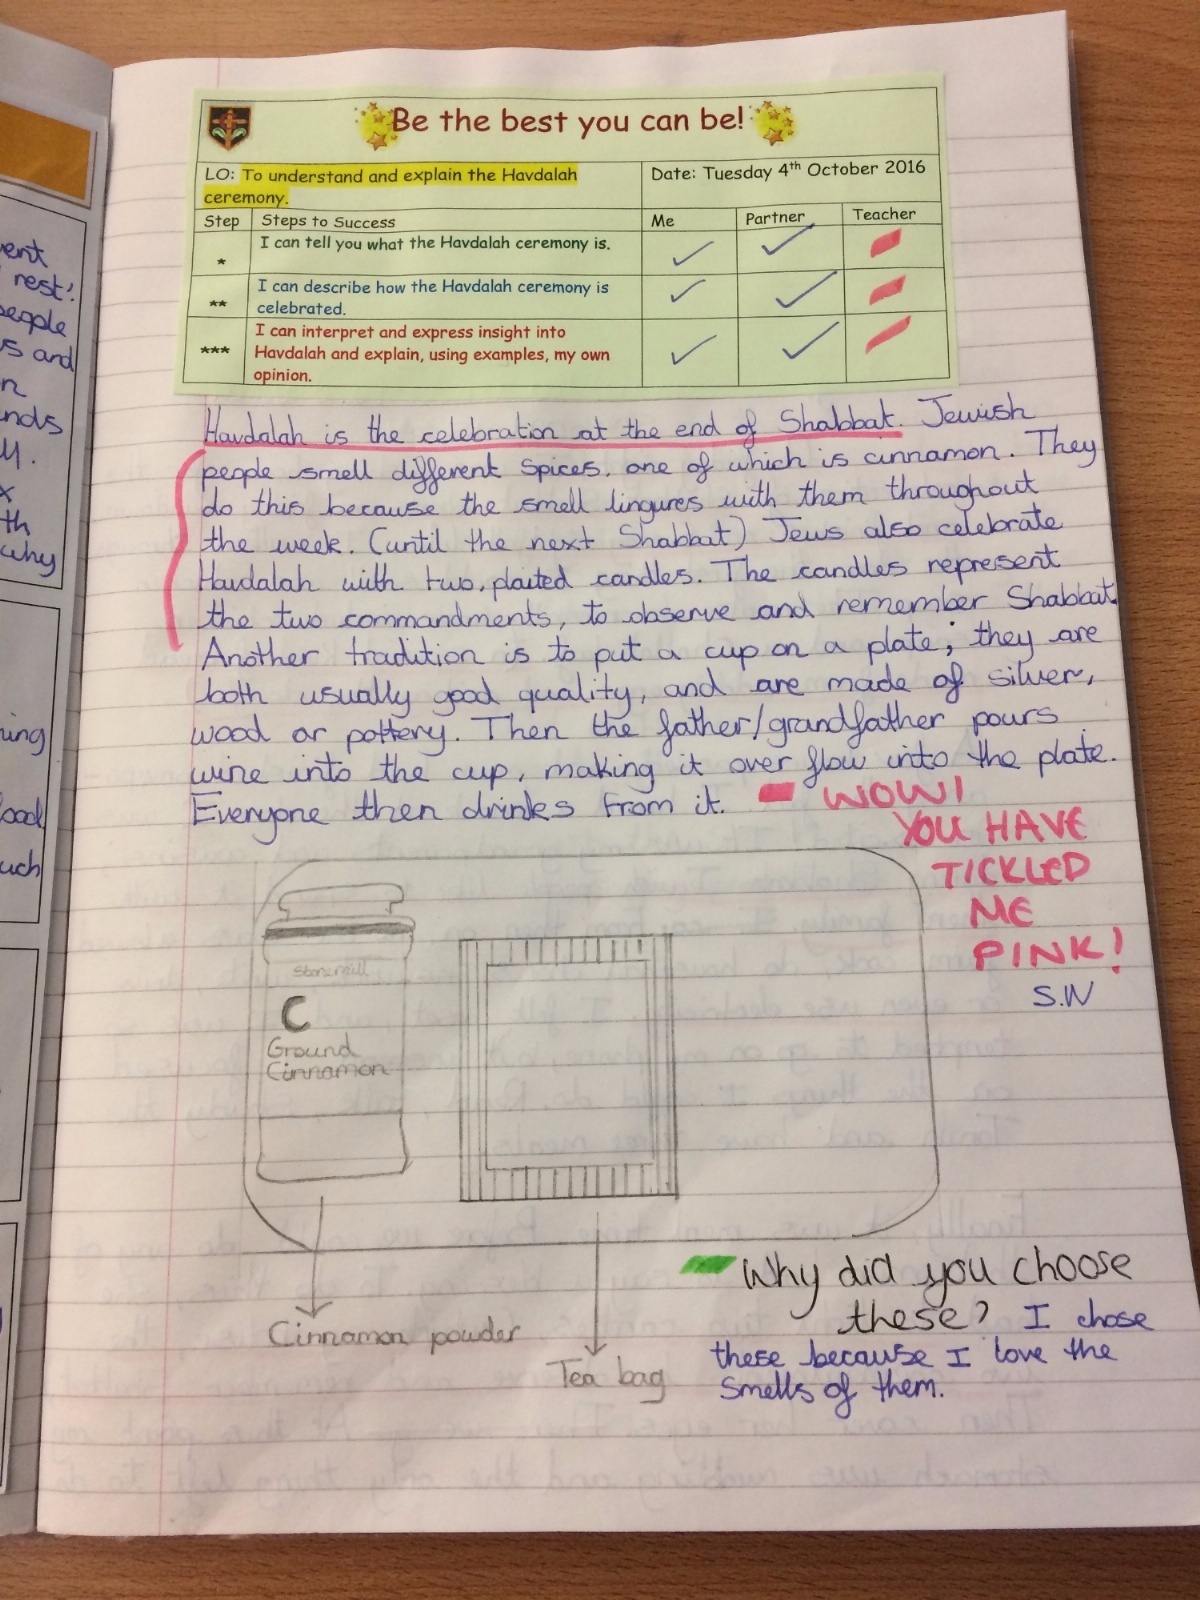 Be the best you can be!
LO: To understand and explain the Havdalah
ceremony.
Date: Tuesday 4th October 2016
Step Steps to Success Me Partner Teacher
* I can tell you what the Havdalah ceremony is.
** I can describe how the Havdalah ceremony is
celebrated.
*** I can interpret and express insight into
Havdalah and explain, using examples, my own
opinion.
Havdalah is the celebration at the end of Shabbat. Jewish
people smell different spices. one of which is cinnamon. They
do this because the smell lingures with them throughout
the week. (until the next Shabbat) Jews also celebrate
Havdalah with two, plaited candles. The candles represent
the two commandments, to observe and remember Shabbat.
Another tradition is to put a cup on a plate; they are
both usually good quality, and are made of silver,
wood or pottery. Then the father/grandfather pours
wine into the cup, making it over flow into the plate.
Everyone then drinks from it.
WOW!
YOU HAVE
TICKLED
ME
PINK!
S.W
Stonemill
C
Ground
Cinnamon
Cinnamon powder
Tea bag
Why did you choose
these? I chose
these because I love the
smells of them.
ent
rest'.
people
s and
n
nds
y.
x
th
why
ing
ood
uch